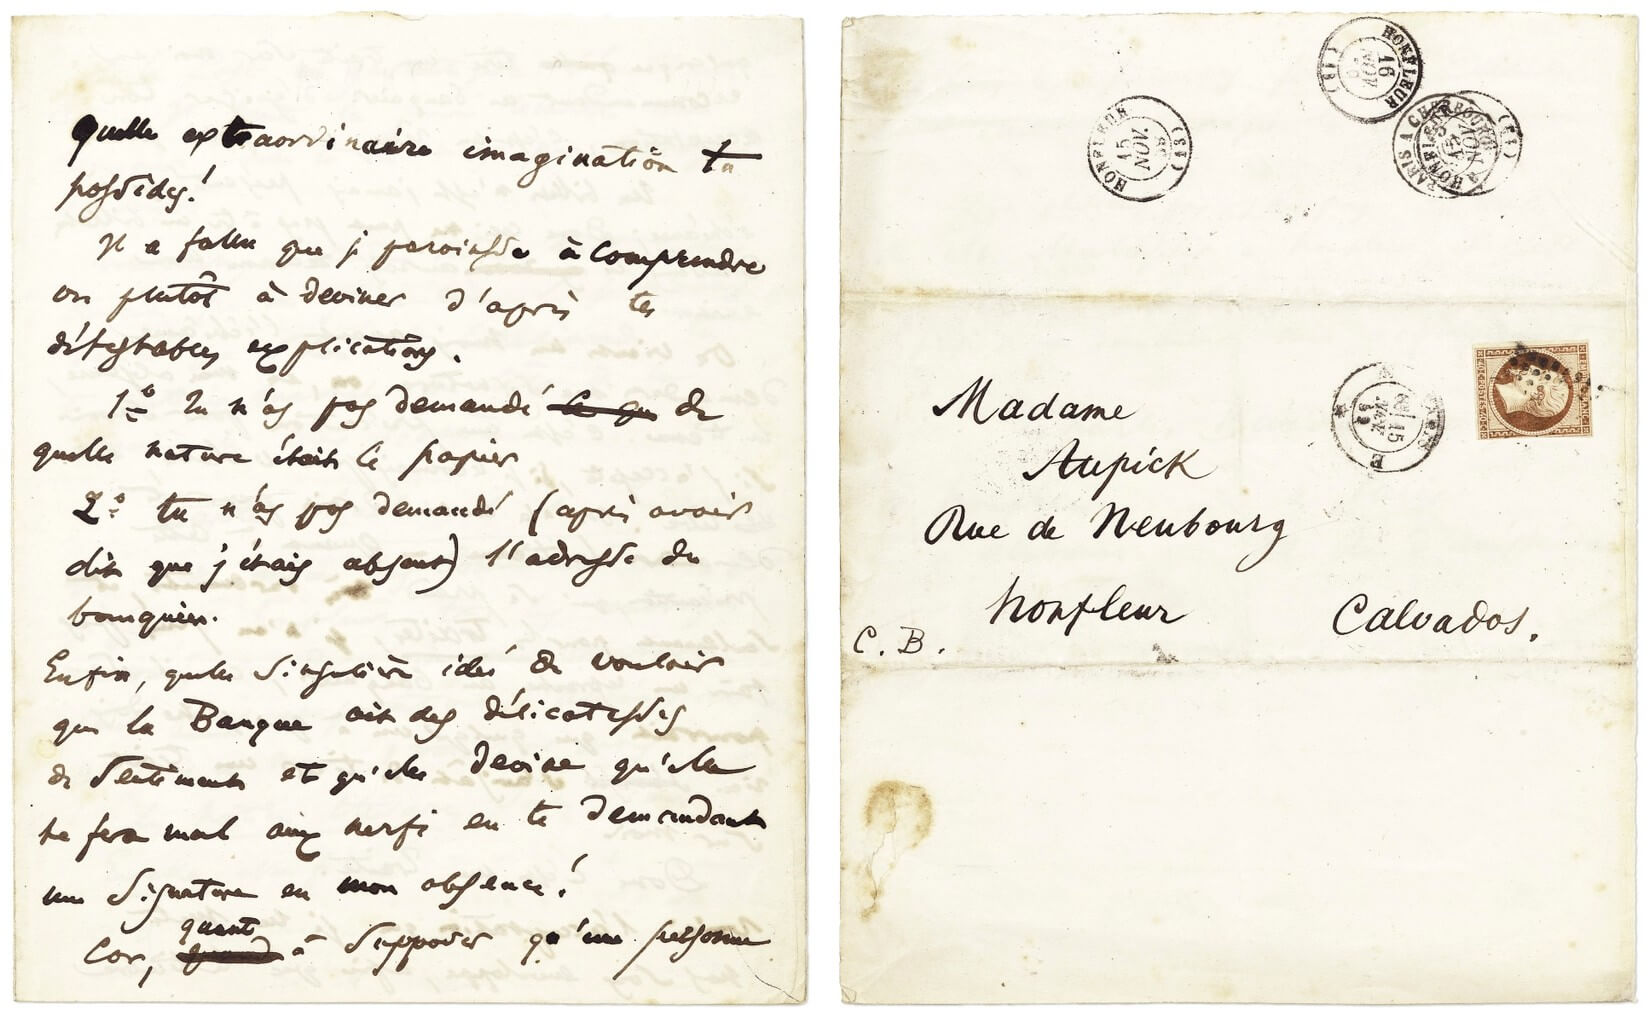 Quelle extraordinaire imagination tu
possèdes!
Il a fallu que je paroisse à comprendre
ou plutôt à deviner d'après tes
détestables explications.
1º Tu n'as pas demandé de
quelle nature était le papier
2º tu n'as pas demandé (après avoir
dit que j'étais absent) l'adresse du
banquier.
Enfin, quelle singulière idée de vouloir
que la Banque ait des délicatesses
de sentiment et qu'elle devine qu'elle
te fera mal aux nerfs en te demandant
une signature en mon absence!
Car, quant à supposer qu'une personne
HONFLEUR (13)
16
NOV.
HONFLEUR (13)
15
NOV.
58
PARIS A CHERBOURG
PARIS
15
NOV.
58
E
EMPIRE FRANC
Madame
Aupick
Rue de Neubourg
honfleur Calvados.
C. B.